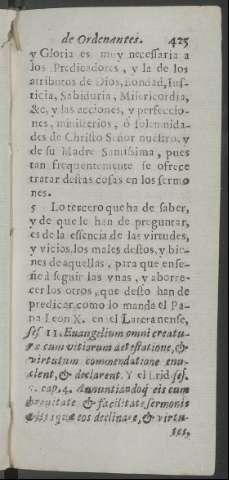 de Ordenantes. 425
y Gloria es muy necessaria a
los Predicadores, y la de los
atributos de Dios, Bondad, Jus-
ticia, Sabiduria, Misericordia,
&c, y las acciones, y perfeccio-
nes, ministerios, ò solemnida-
des de Christo Señor nuestro, y
de su Madre Santisima, pues
tan frequentemente se ofrece
tratar destas cosas en los sermo
nes.
5 Lo tercero que ha de saber,
y de que le han de preguntar,
es de la essencia de las virtudes,
y vicios, los males destos, y bie-
nes de aquellas, para que ense-
ñe à seguir las vnas, y aborre-
cer los otros, que desto han de
predicar, como lo manda el Pa-
pa Leon X. en el Lateranense,
ses. 11. Euangelium omni creatu-
ræ cum vitiorum detestatione, &
virtutum commendatione enu-
cient, & declarent. Y el Trid. ses.
5. cap. 4. Annuntiandoq; eis cum
breuitate & facilitate sermonis
quæ eos declinare, & virtu-
tes,